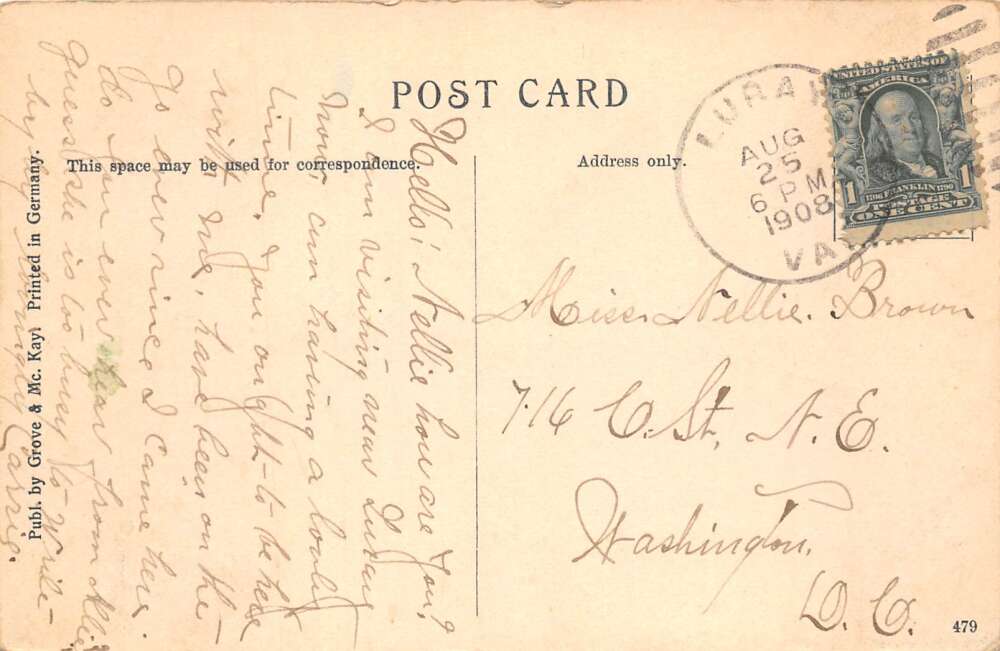 POST CARD
This space may be used for correspondence.
Address only.
Publ. by Grove & Mc. Kay. Printed in Germany.
Hello! Nellie how are you,
I am visiting near Luray
now, am having a lovely
time. You ought to be here
with me, have been on the
go ever since I came here.
Do you ever hear from Allie
guess she is too busy to write
by by lovingly Carrie.
LURAY
AUG
25
6 PM
1908
VA
UNITED STATES OF
AMERICA
1 1
1706 FRANKLIN 1790
POSTAGE
ONE CENT
Miss. Nellie. Brown
716 C. St, N. E.
Washington,
D. C.
479